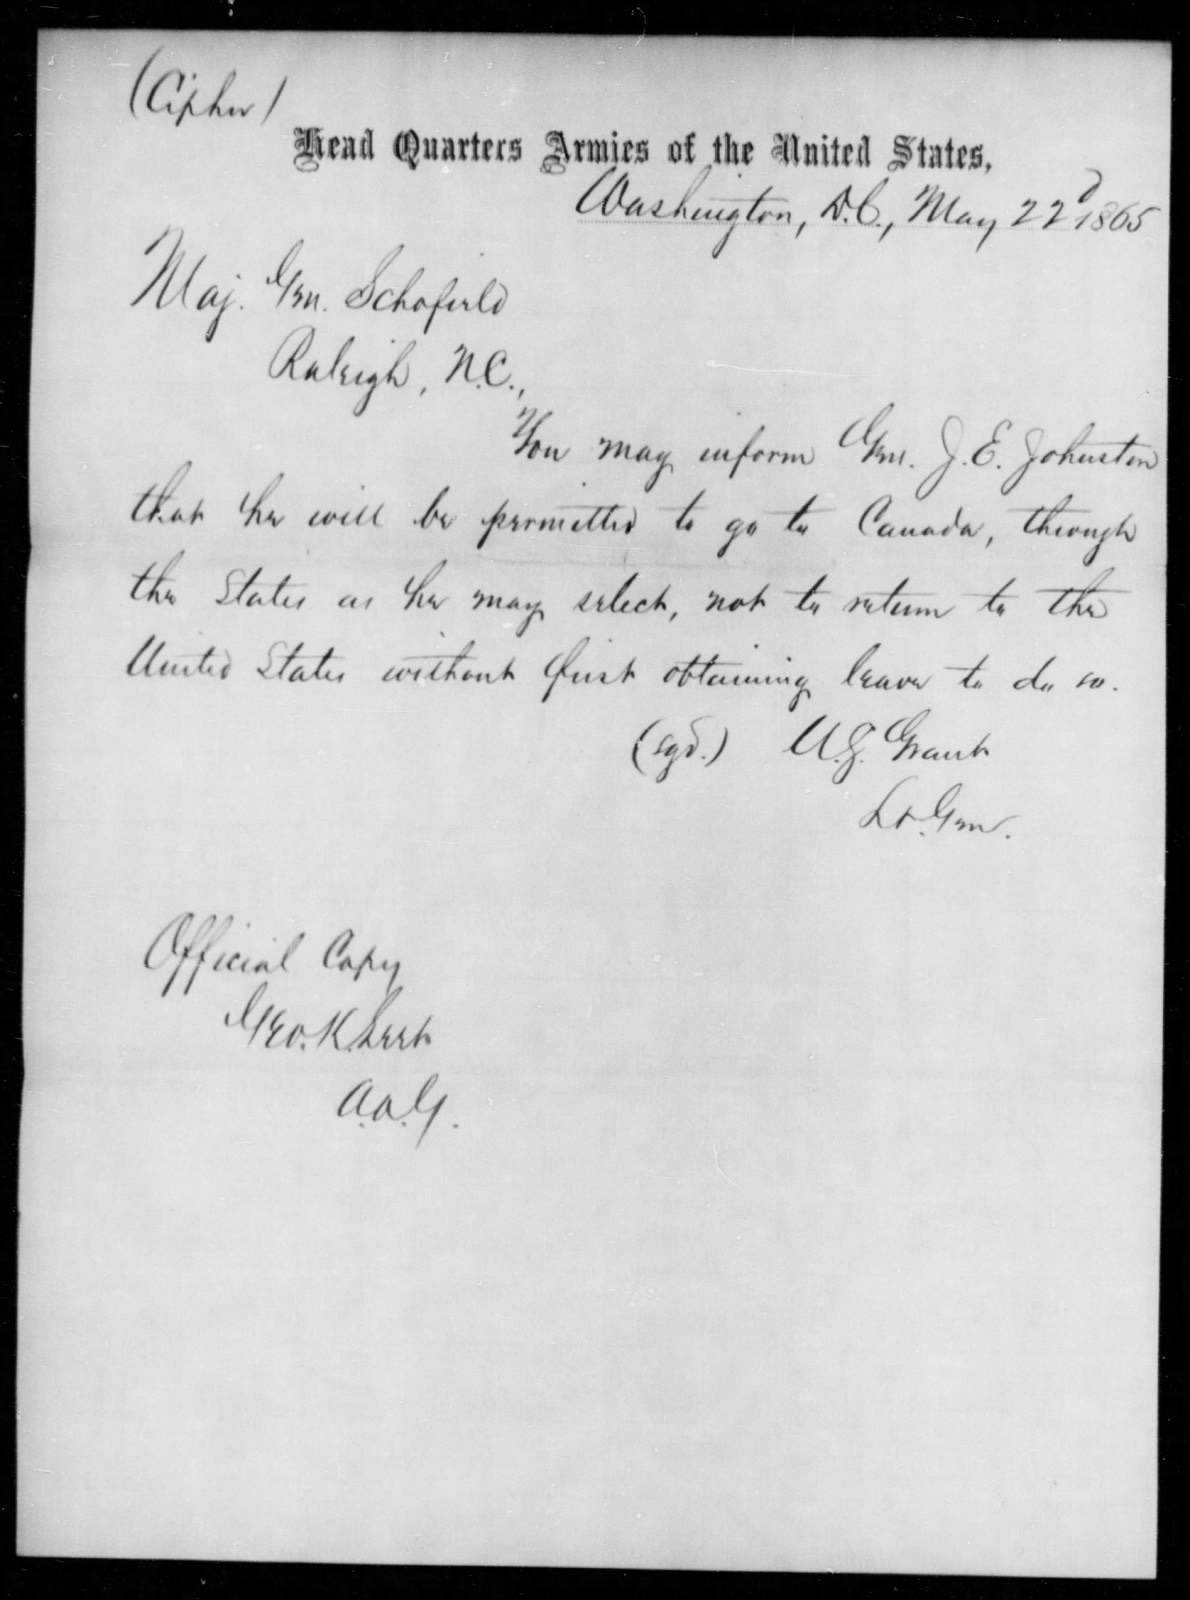 (Cipher)
Head Quarters Armies of the United States,
Washington, D.C., May 22d 1865
Maj. Gen. Schofield
Raleigh, N.C.,
You may inform Gen. J. E. Johnston
that he will be permitted to go to Canada, through
the States as he may select, not to return to the
United States without first obtaining leave to do so.
(sgd.) U.S. Grant
Lt. Gen.
Official Copy
Geo. K. Leet
A.A.G.